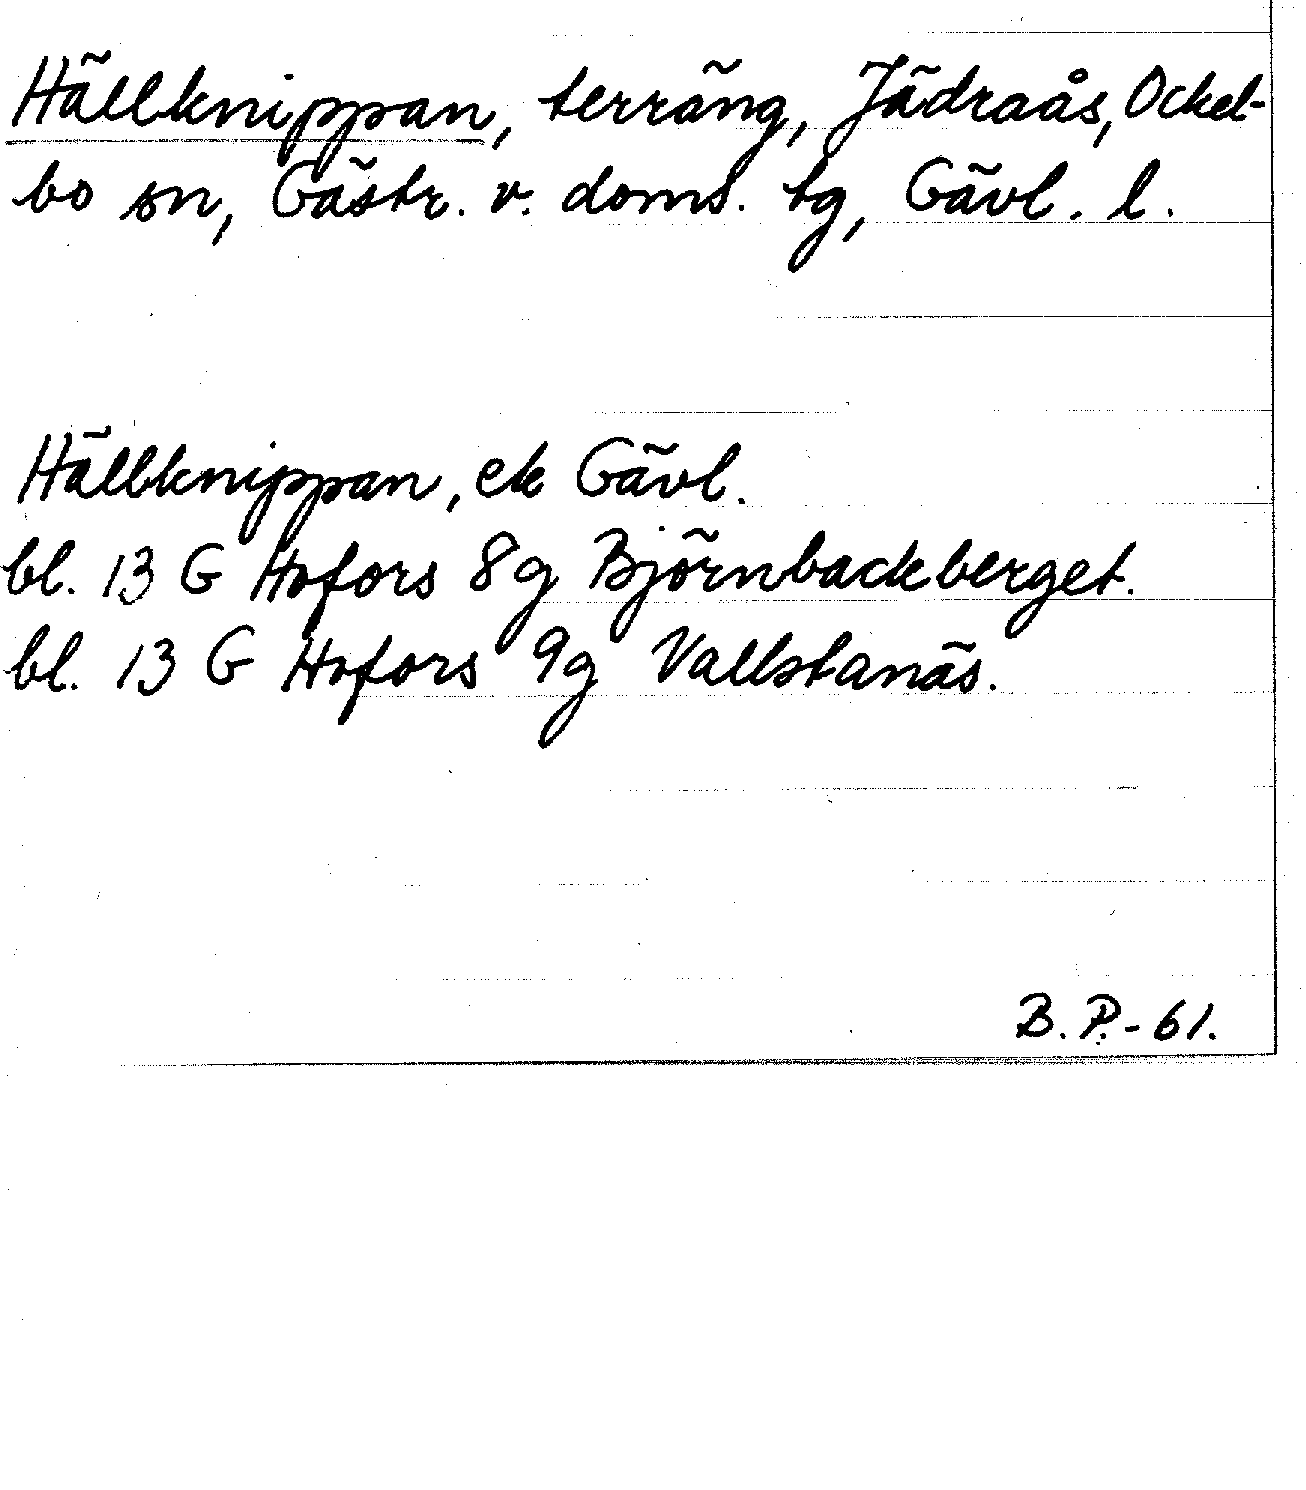 Hällknippan, terräng, Jädraås, Ockel-
bo sn, Gästr. v. doms. tg, Gävl. l.
Hällknippan, ek Gävl.
bl. 13 G Hofors 8g Björnbackberget.
bl. 13 G Hofors 9g Vallstanäs.
B. P. - 61.